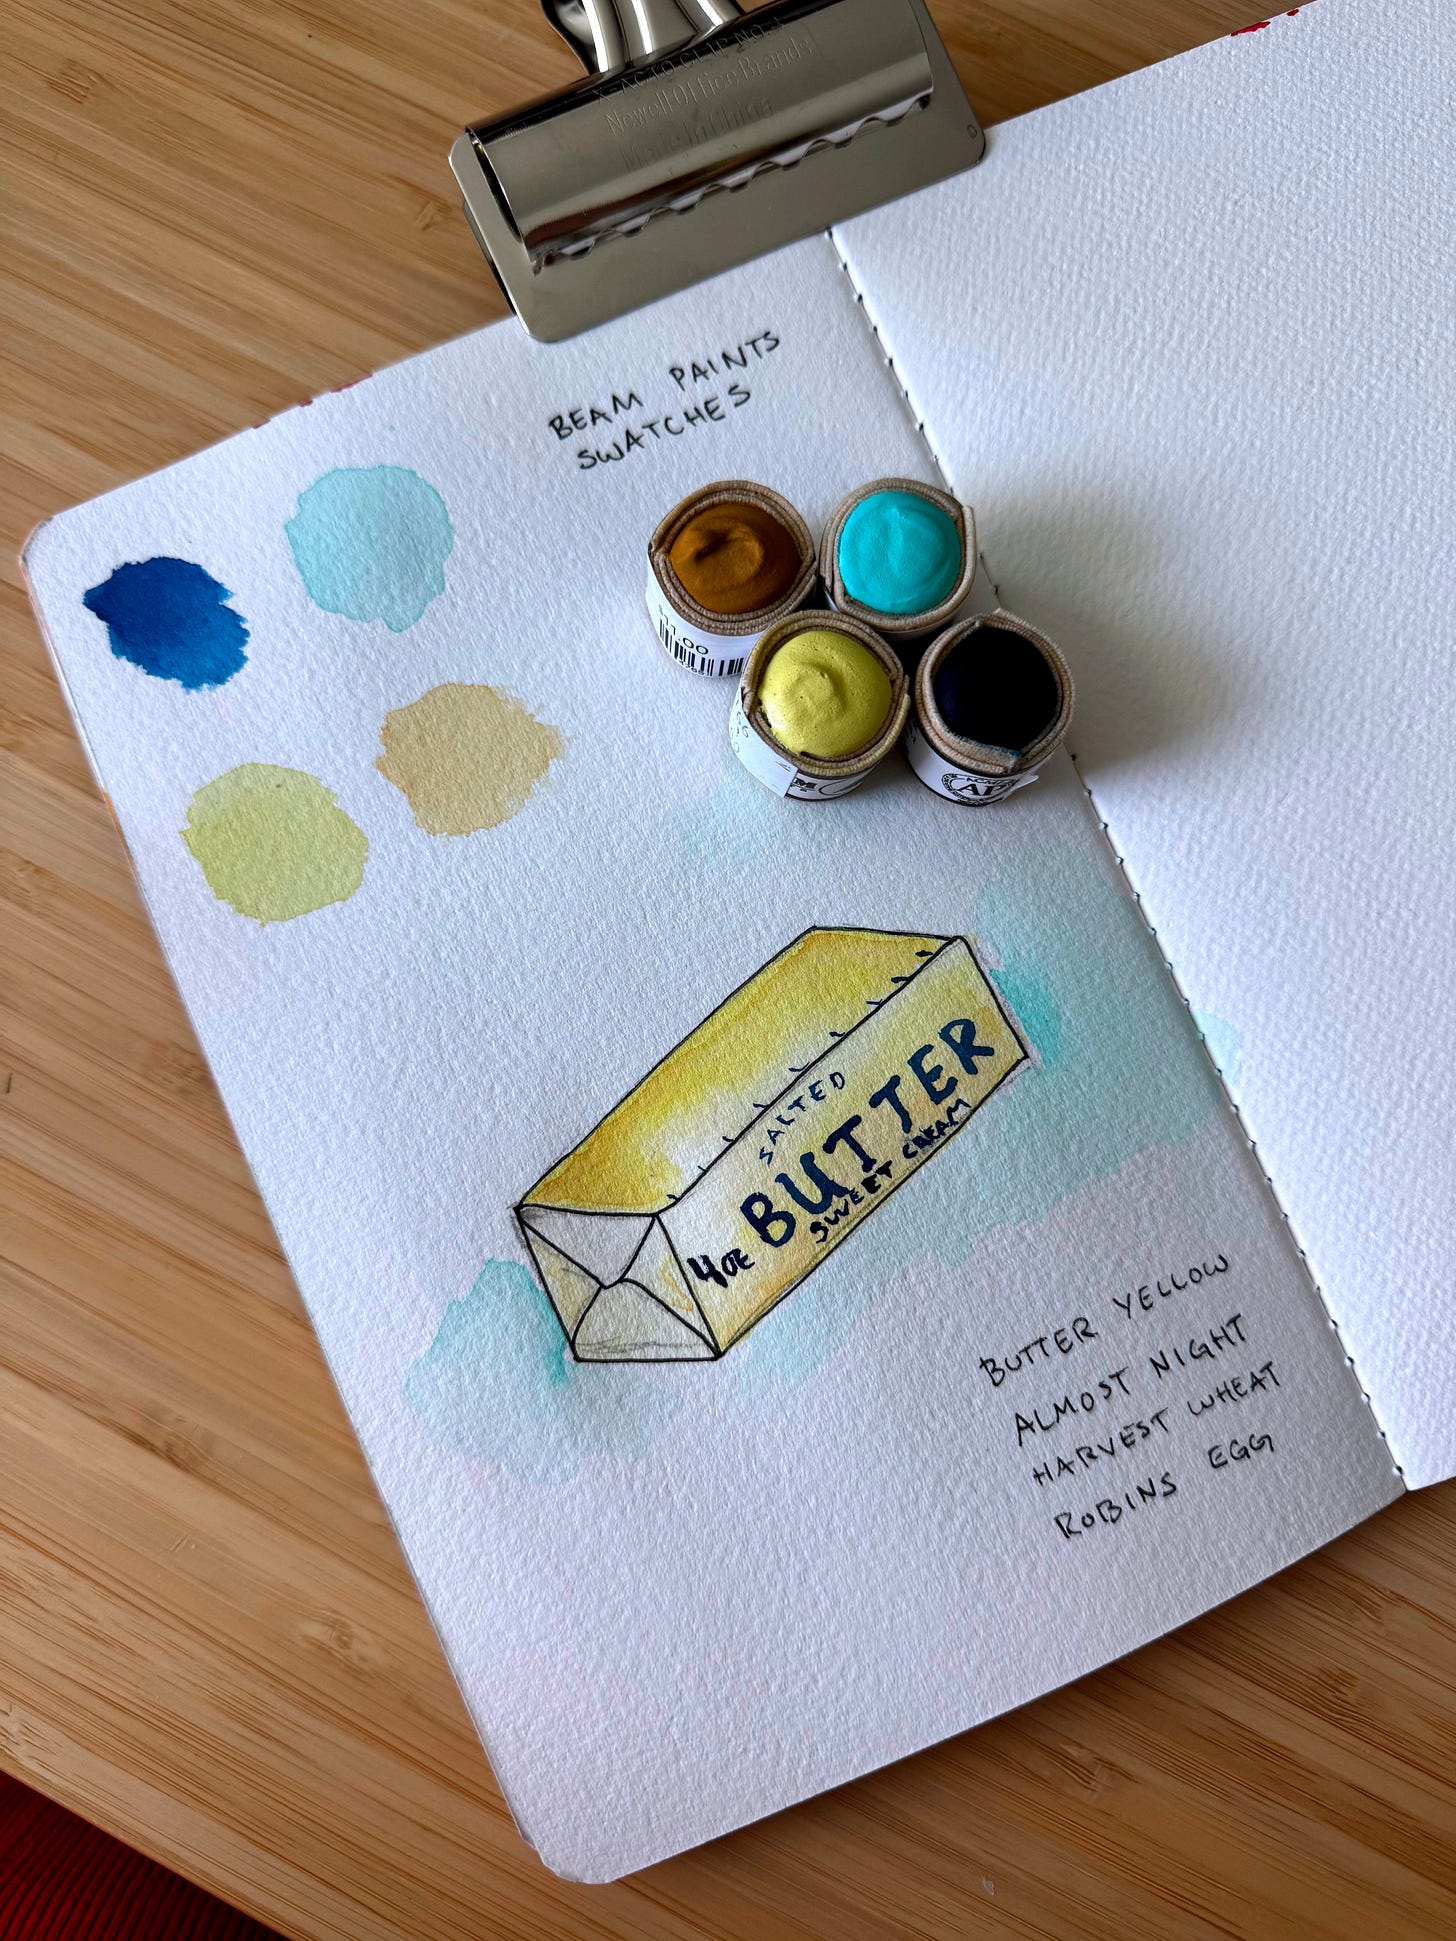 X-ACTO CLIP NO. 4
Newell Office Brands
Made in China
BEAM PAINTS
SWATCHES
$11.00
SALTED
BUTTER
SWEET CREAM
4OZ
BUTTER YELLOW
ALMOST NIGHT
HARVEST WHEAT
ROBINS EGG